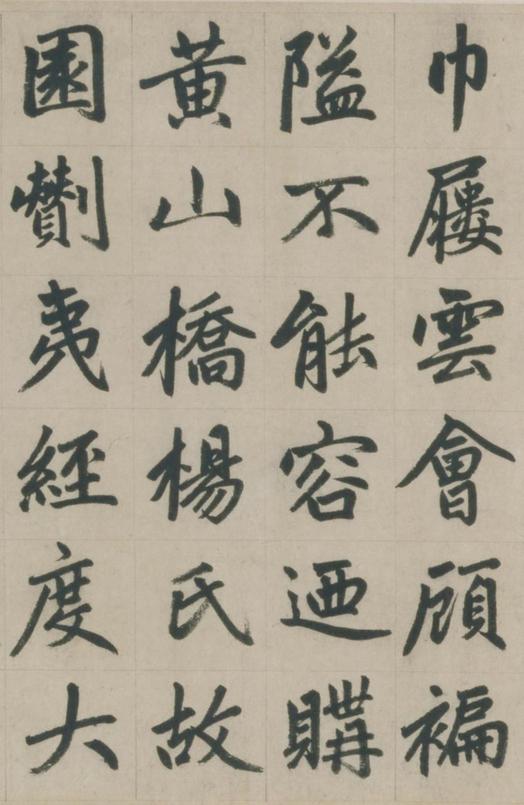 巾屨雲會顧褊
隘不能容迺購
黄山橋楊氏故
園剗夷經度大